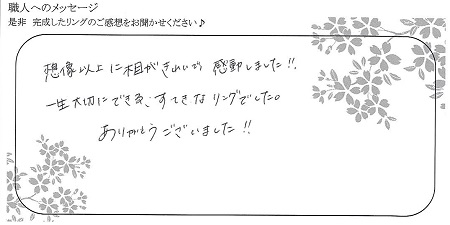 職人へのメッセージ
是非 完成したリングのご感想をお聞かせください♪
想像以上に木目がきれいで 感動しました!!
一生大切にできる、すてきなリングでした。
ありがとうございました!!